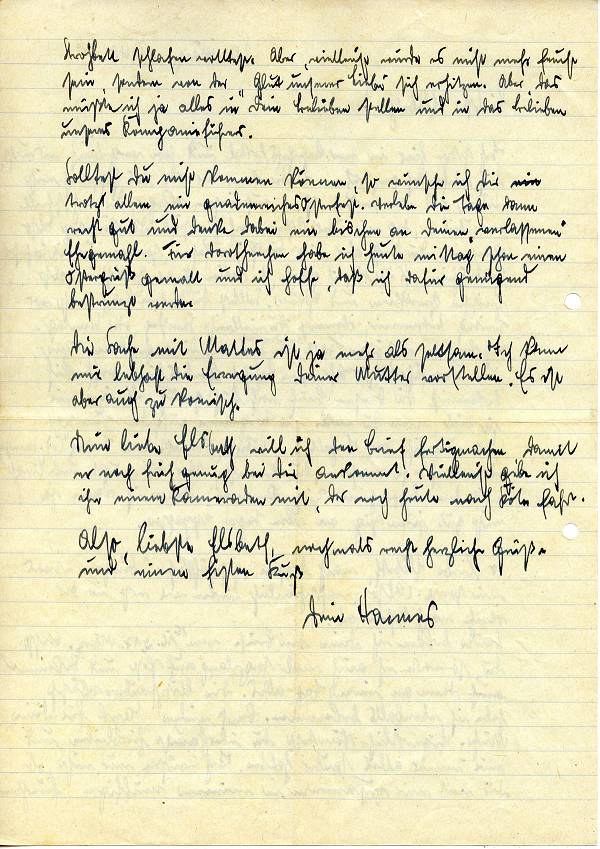 Strohbett schlafen wolltest. Aber vielleicht würde es nicht mehr feucht
sein, sondern von der "Glut unserer Liebe" sich erhitzen. Aber das
müßte ich ja alles in Dein Belieben stellen und in das Belieben
unseres Kompanieführers.
Solltest Du nicht kommen können, so wünsche ich Dir ein
trotz allem ein gnadenreiches Osterfest. Verlebe die Tage dann
recht gut und denke dabei ein bischen an Deinen "verlassenen"
Ehegemahl. Für Dorotheechen habe ich heute mittag schon einen
Ostergruß gemalt und ich hoffe, daß ich dafür genügend
bestaunt werde.
Die Sache mit Mattes ist ja mehr als seltsam. Ich kann
mir lebhaft die Erregung Deiner Mutter vorstellen. Es ist
aber auch zu komisch.
Nun liebe Elsbeth will ich den Brief fertigmachen, damit
er noch früh genug bei Dir ankommt. Vielleicht gebe ich
ihn einem Kameraden mit, der noch heute nach Köln fährt.
Also, liebste Elsbeth, nochmals recht herzliche Grüße
und einen festen Kuß
Dein Hannes